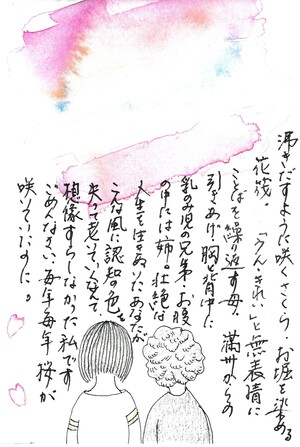 沸きだすように咲くさくら・お堀を染める
花筏。「うん・きれい」と無表情に
ことばを繰返す母。満州からの
引きあげ・胸と背中に
乳のみ児の兄弟・お腹
の中には姉。壮絶な
人生を生きぬいたあなたが
こんな風に認知の色を
失って老いていくなんて、
想像すらしなかった私です
ごめんなさい、毎年毎年 桜が
咲いていたのに。